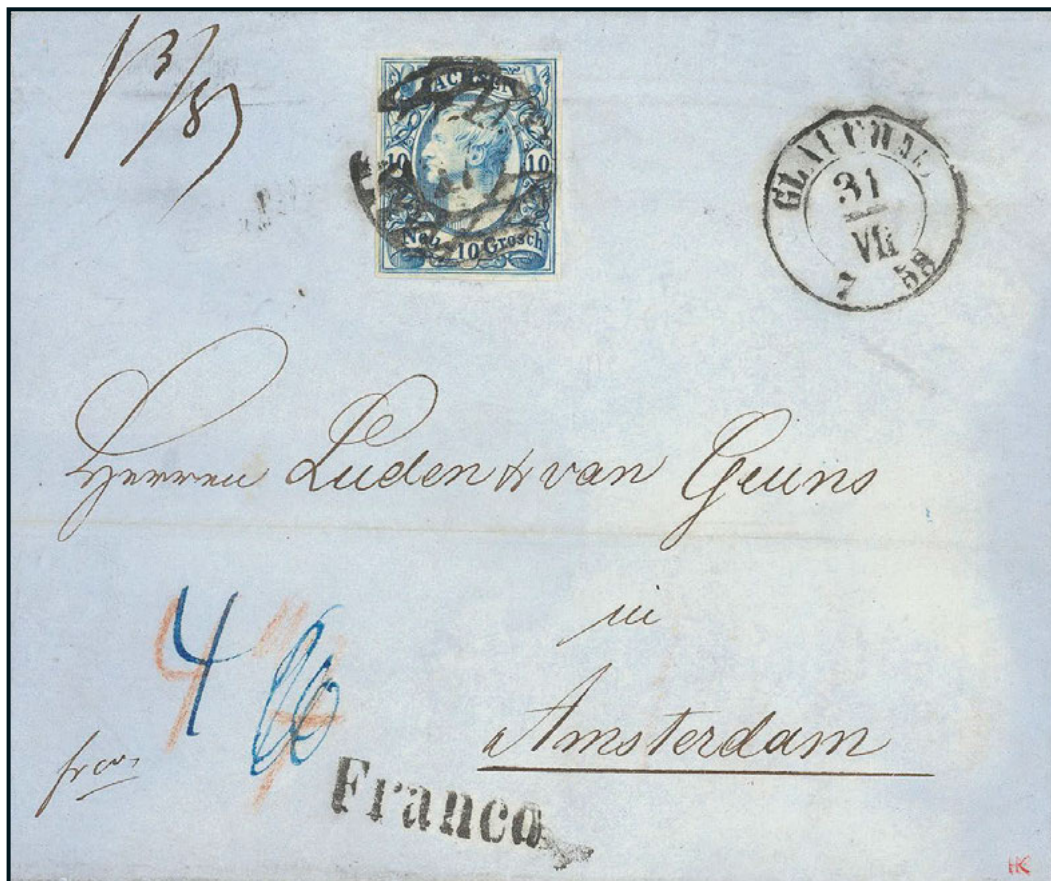 13/8
SACHSEN
10 10
Neu 10 Grosch
GLAUCHAU
31
VII
7 58
Herren Luden & van Geuns
in
Amsterdam
4
franco
Franco
HK